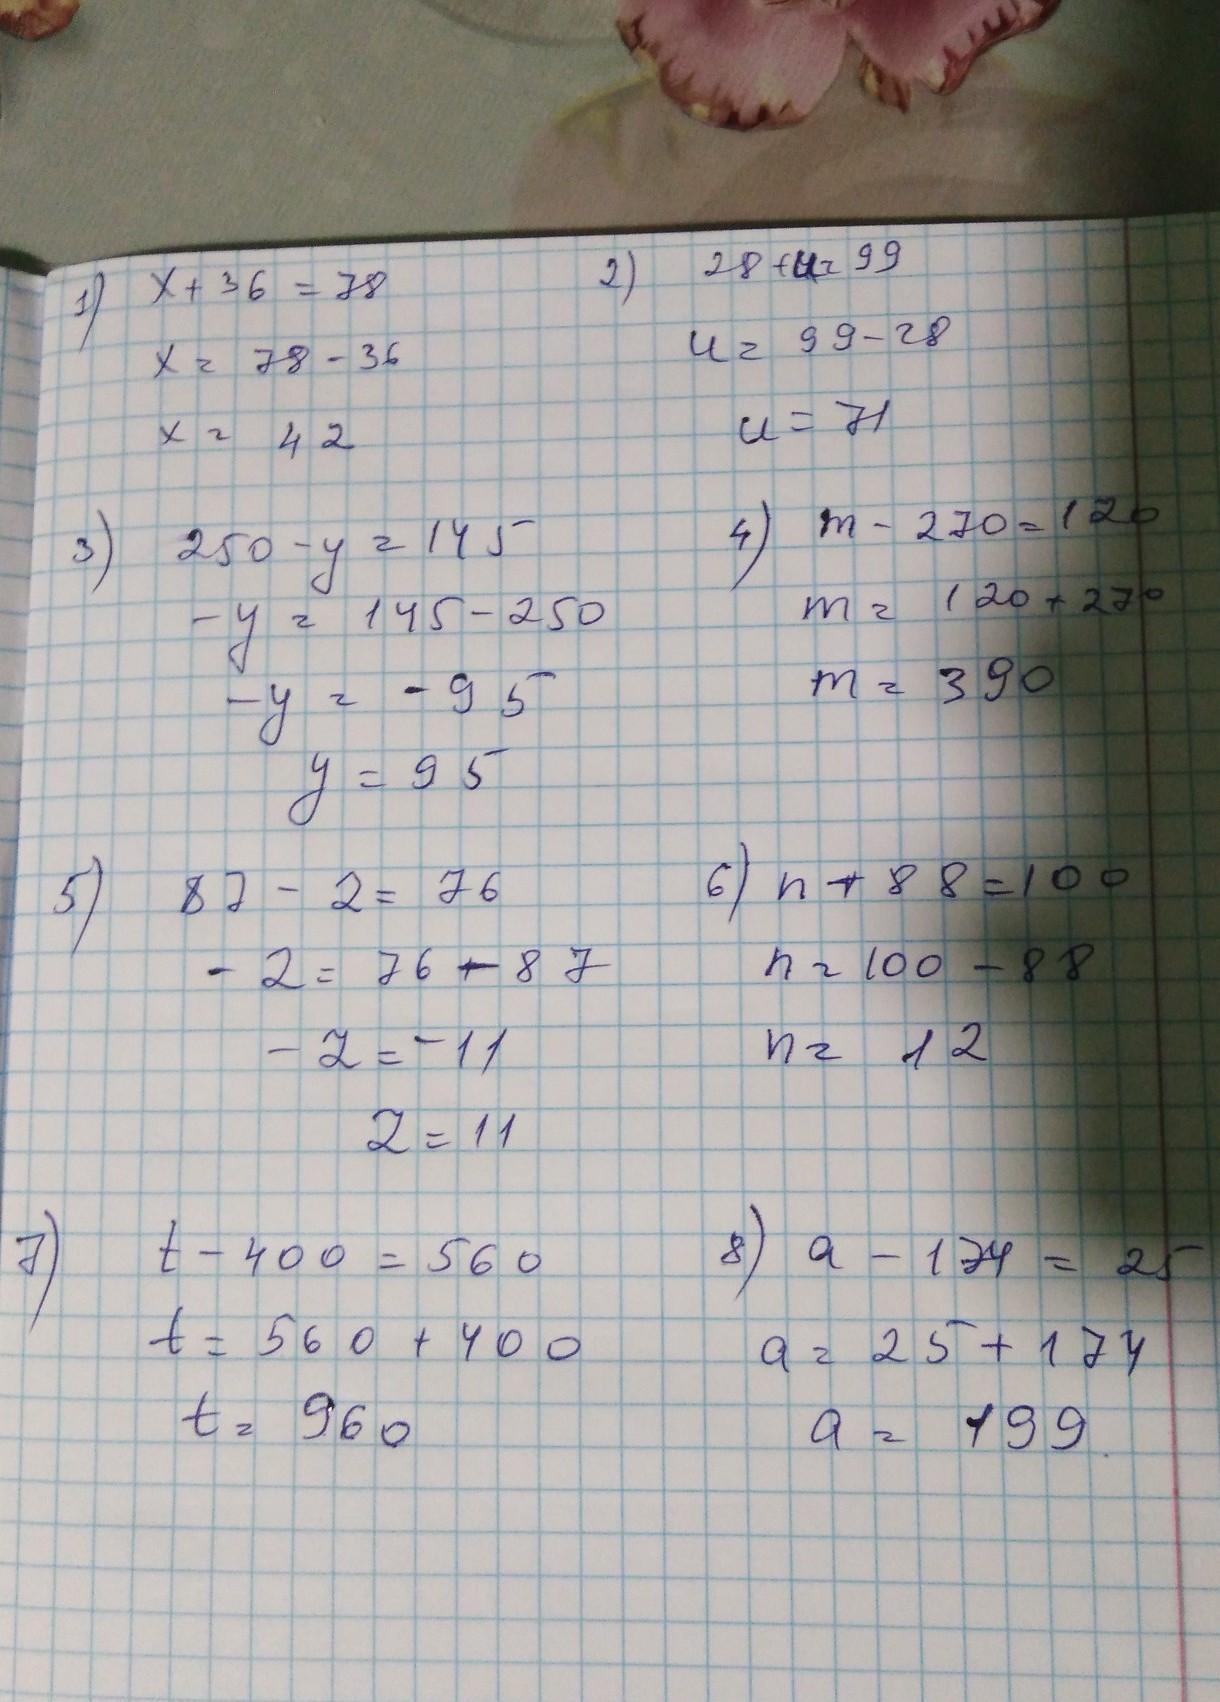 1) x + 36 = 78
x = 78 - 36
x = 42
2) 28 + u = 99
u = 99 - 28
u = 71
3) 250 - y = 145
- y = 145 - 250
- y = - 95
y = 95
4) m - 270 = 120
m = 120 + 270
m = 390
5) 87 - z = 76
- z = 76 - 87
- z = - 11
z = 11
6) n + 88 = 100
n = 100 - 88
n = 12
7) t - 400 = 560
t = 560 + 400
t = 960
8) a - 174 = 25
a = 25 + 174
a = 199.